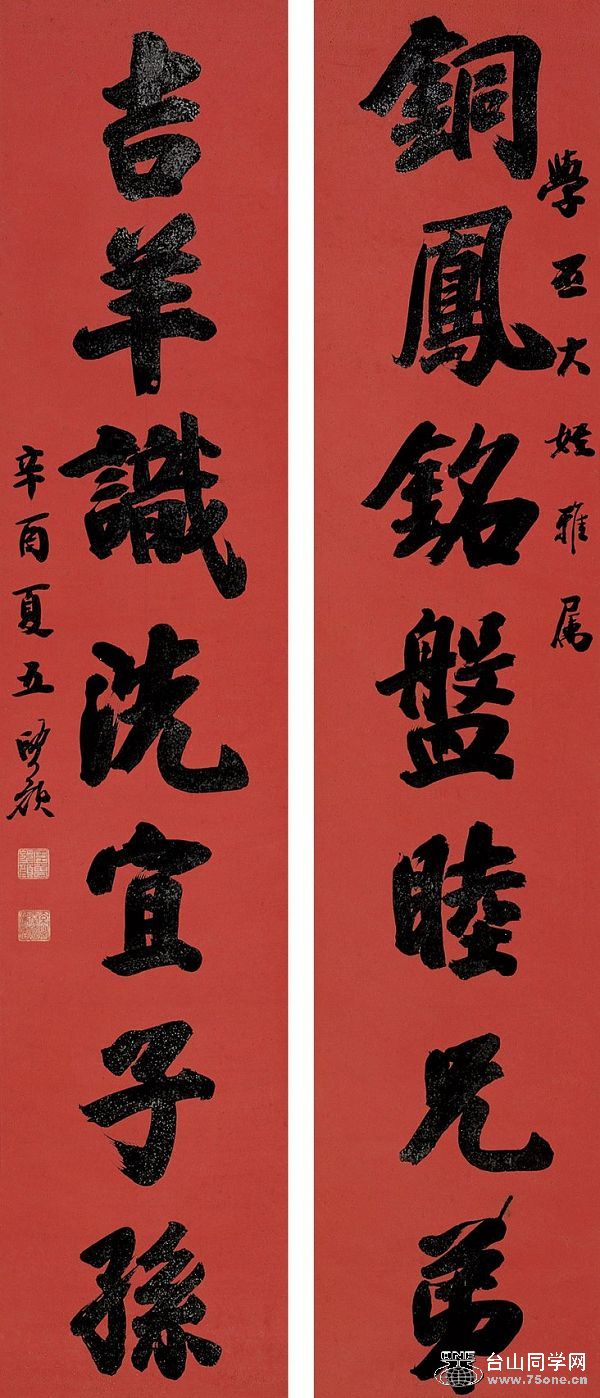 銅鳳銘盤睦兄弟
學亞大姪雅属
吉羊識洗宜子孫
辛酉夏五
台山同学网
www.75one.cn